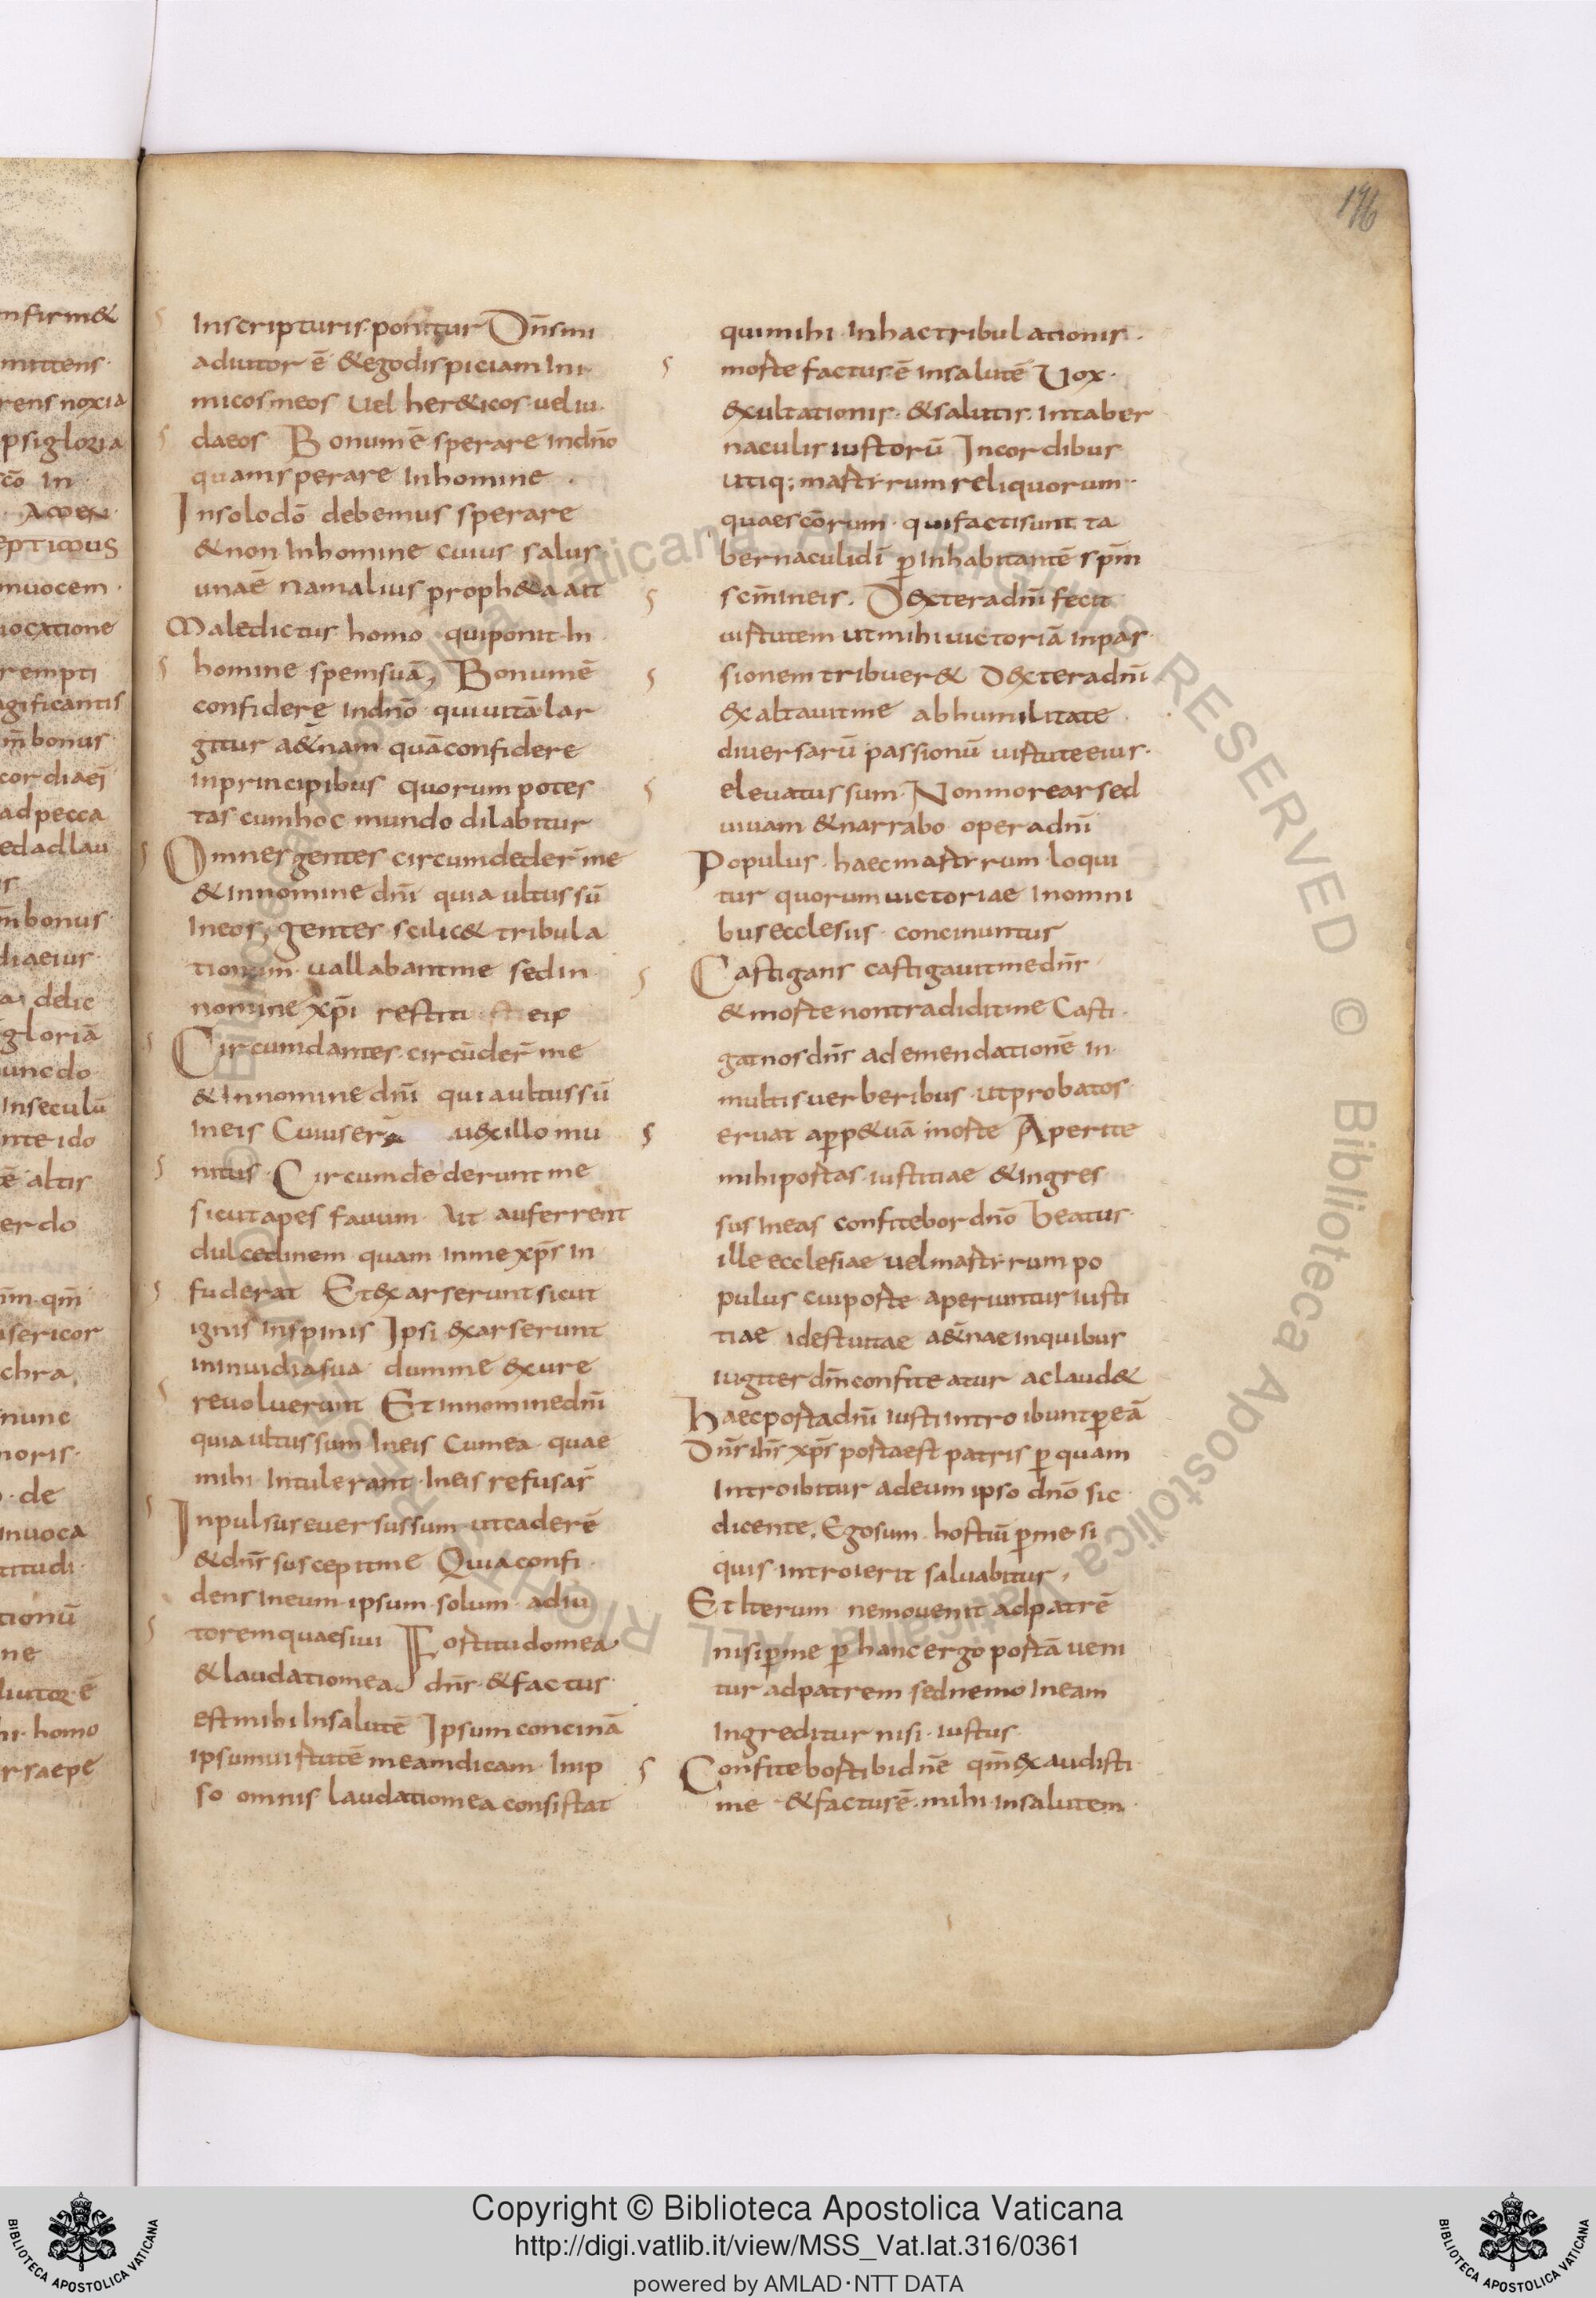 196
Inscripturis ponitur Dn̄s mi
adiutor ē &ego dispiciam ini
micos meos Vel her&icos uel iu
daeos Bonum ē sperare indn̄o
quam sperare Inhomine
Insolo dō debemus sperare
&non Inhomine cuius salus
uana ē Nam alius proph&a ait
Maledictus homo qui ponit In
homine spem suā, Bonum ē
confidere Indn̄o qui uitā lar
gitur a&nam quā confidere
Inprincipibus quorum potes
tas cum hoc mundo dilabitur
Omnes gentes circumdeder̄ me
&Innomine dn̄i quia ultus sū
Ineos, gentes scilic& tribula
tionum uallabant me sed in
nomine xp̄i restiti eis
Circumdantes circūder̄ me
&Innomine dn̄i quia ultus sū
Ineis Cuius uexillo mu
nitus Circumdederunt me
sicut apes fauum Vt auferrent
dulcedinem quam Inme xp̄s In
fuderat Et exarserunt sicut
ignis Inspinis Ipsi exarserunt
ininuidia sua dum me exure
re uoluerunt Et innomine dn̄i
quia ultus sum Ineis Cum ea quae
mihi Intulerant Ineis refusar̄
Inpulsus euersus sum ut caderē
&dn̄s suscepit me Quia confi
dens Ineum ipsum solum adiu
torem quaesiui Fortitudo mea
&laudatio mea dn̄s &factus
est mihi Insalutē Ipsum concinā
ipsum uirtutē meam dicam In ip
so omnis laudatio mea consistat
qui mihi Inhac tribulationis
morte factus ē insalutē Vox
exultationis &salutis Intaber
naculis iustorū Incordibus
utiq; martyrum reliquorum
quae scōrum qui facti sunt ta
bernaculi dī p̲ Inhabitantē sp̄m
sc̄m Ineis. Dextera dn̄i fecit
uirtutem ut mihi uictoriā inpas
sionem tribuer& Dextera dn̄i
exaltauit me ab humilitate
diuersarū passionū uirtute eius
eleuatus sum Non moriar sed
uiuam &narrabo opera dn̄i
Populus haec martyrum loqui
tur quorum uictoriae Inomni
bus ecclesiis concinuntur
Castigans castigauit me dn̄s
&morte non tradidit me Casti
gat nos dn̄s ad emendationē in
multis uerberibus ut probatos
eruat a p̲p&uā morte Aperite
mihi portas iustitiae &ingres
sus Ineas confitebor dn̄o beatus
ille ecclesiae uel martyrum po
pulus cui porte aperiuntur iusti
tiae id est uitae a&nae inquibus
iugiter dn̄m confiteatur ac laud&
Haec porta dn̄i iusti intro ibunt p̲ eā
Dn̄s ih̄s xp̄s porta est patris p̲ quam
Introibitur ad eum ipso dn̄o sic
dicente, Ego sum hostiū p̲ me si
quis introierit saluabitur,
Et Iterum nemo uenit ad patrē
nisi p̲ me p̲ hanc ergo portā ueni
tur ad patrem sed nemo Ineam
Ingreditur nisi iustus
Confitebor tibi dn̄e qm̄ exaudisti
me &factus ē mihi insalutem
Copyright © Biblioteca Apostolica Vaticana
http://digi.vatlib.it/view/MSS_Vat.lat.316/0361
powered by AMLAD·NTT DATA
BIBLIOTECA APOSTOLICA VATICANA
BIBLIOTECA APOSTOLICA VATICANA